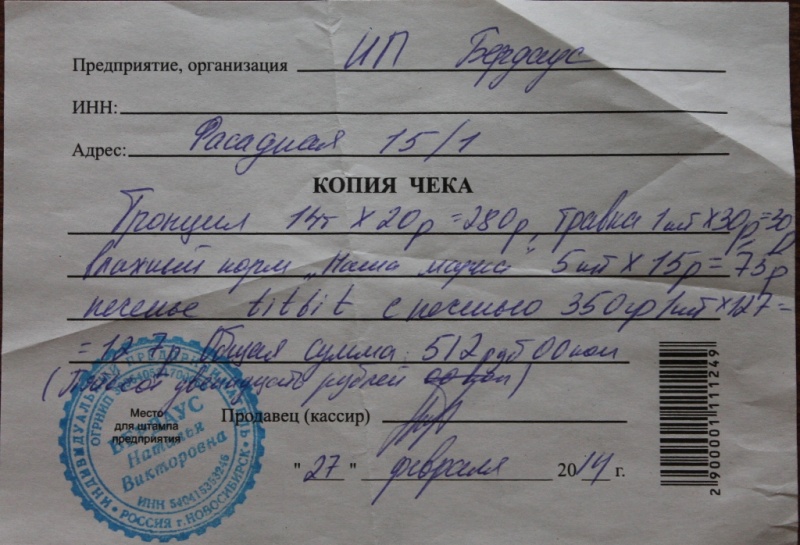 Предприятие, организация ИП Бердаус
ИНН:
Адрес: Рассадная 15/1
КОПИЯ ЧЕКА
14т х 20р = 280р, травка 1шт х 30р = 30р
влажный корм "Наша марка" 5шт х 15р = 75р
печенье titbit с 350гр 1шт х 127 =
= 127р Общая сумма: 512 руб 00 коп
(Пятьсот двенадцать рублей 00 коп)
Место
для штампа
предприятия
Продавец (кассир)
"27" февраля 2014 г.
ИНДИВИДУАЛЬНЫЙ ПРЕДПРИНИМАТЕЛЬ
БЕРДАУС
Наталья
Викторовна
ИНН 540415353246
РОССИЯ г.НОВОСИБИРСК
2 900001 111249